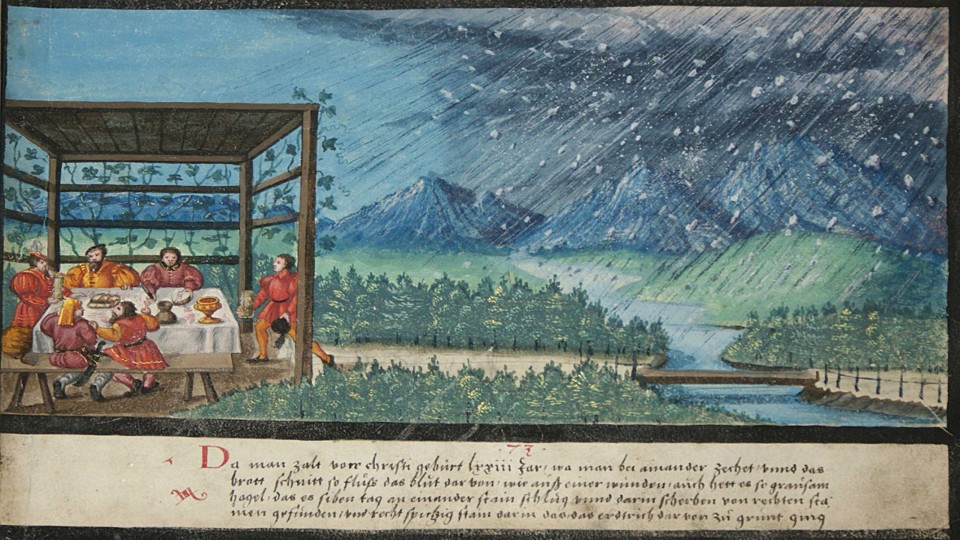 ·73·
Da man zalt vorr christi gebürt lxxiii Jar, wa man bei ainander zechet, vnnd das
brott schnitt so flüß das blůt dar von, wie auß einer wünden, auch hett es so graüsam
hagel, das es siben tag an einander stain schlüg vnnd darin scherben von rechten
men gefunden, vnd recht spitzig stain darin das das erdtrich dar von zů grünt ging